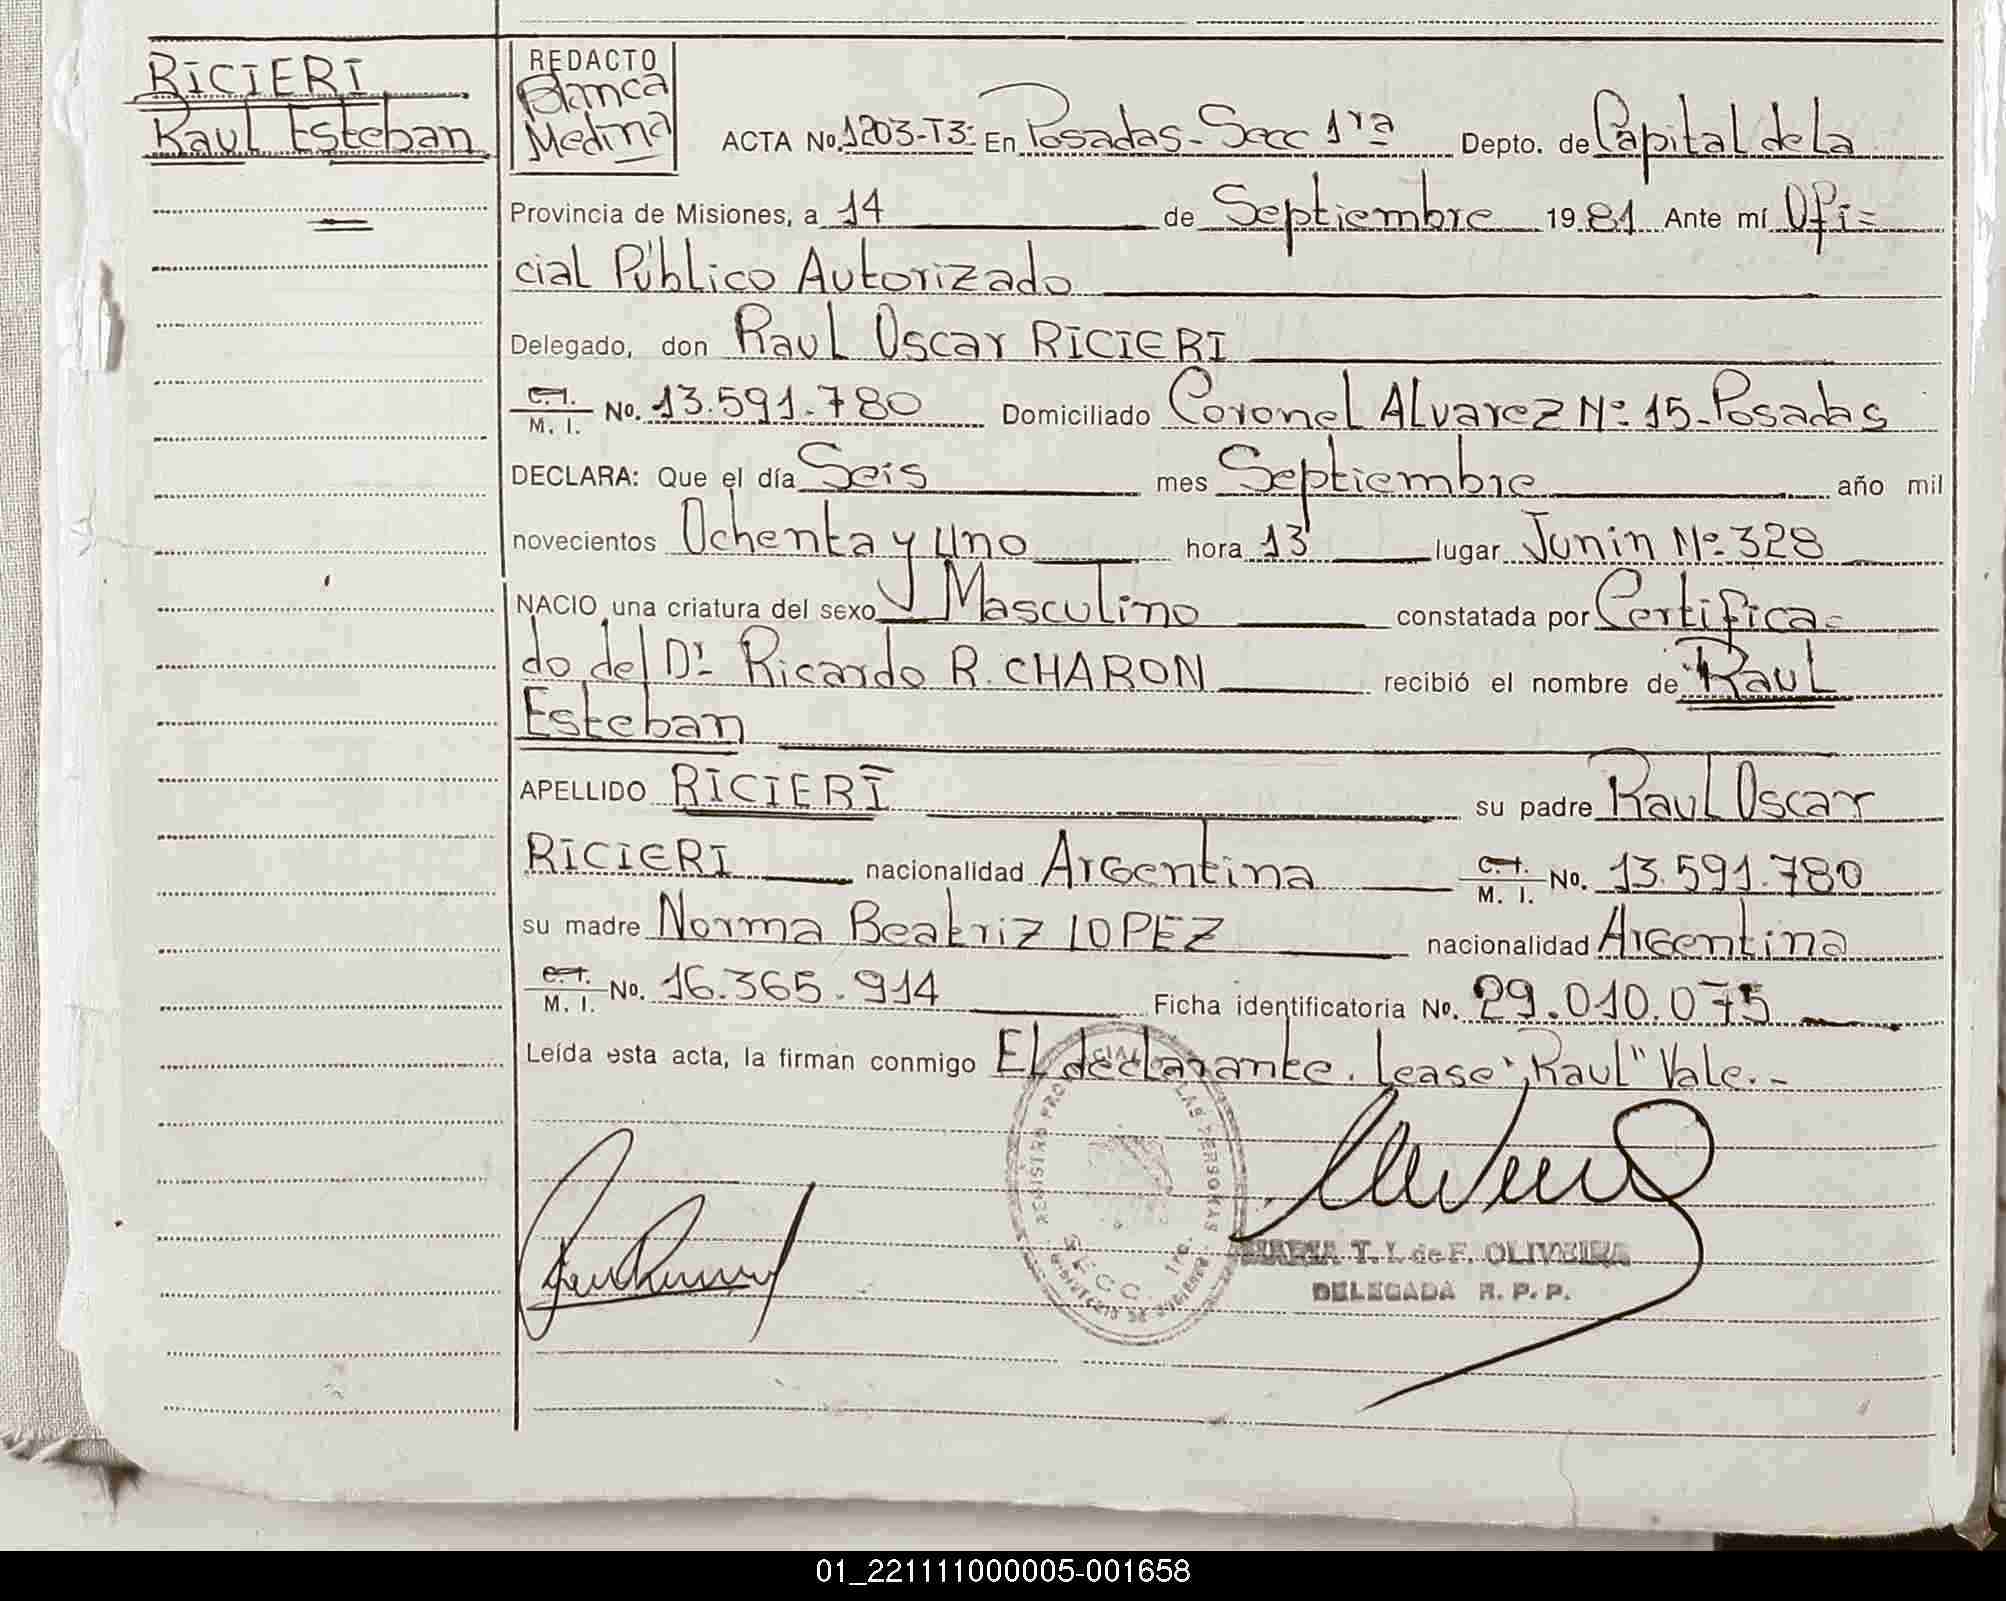 RICIERI
Raul Esteban
REDACTO
Blanca
Medina
ACTA No. 1203-T3: En Posadas-Secc 1ra Depto. de Capital de la
Provincia de Misiones, a 14 de Septiembre 1981 Ante mí Ofi=
cial Público Autorizado
Delegado, don Raul Oscar RICIERI
C.I. / M. I. No. 13.591.780 Domiciliado Coronel Alvarez Nº 15-Posadas
DECLARA: Que el día Seis mes Septiembre año mil
novecientos Ochenta y Uno hora 13 lugar Junin Nº 328
NACIO una criatura del sexo Masculino constatada por Certifica=
do del Dr Ricardo R. CHARON recibió el nombre de Raul
Esteban
APELLIDO RICIERI su padre Raul Oscar
RICIERI nacionalidad Argentina C.I. / M. I. No. 13.591.780
su madre Norma Beatriz LOPEZ nacionalidad Argentina
C.I. / M. I. No. 16.365.914 Ficha identificatoria No. 29.010.075
Leída esta acta, la firman conmigo El declarante. Lease "Raul" Vale.-
REGISTRO LAS PERSONAS
SECC. 1ra.
MARIA T. I. de F. OLIVEIRA
DELEGADA R. P. P.
01_221111000005-001658